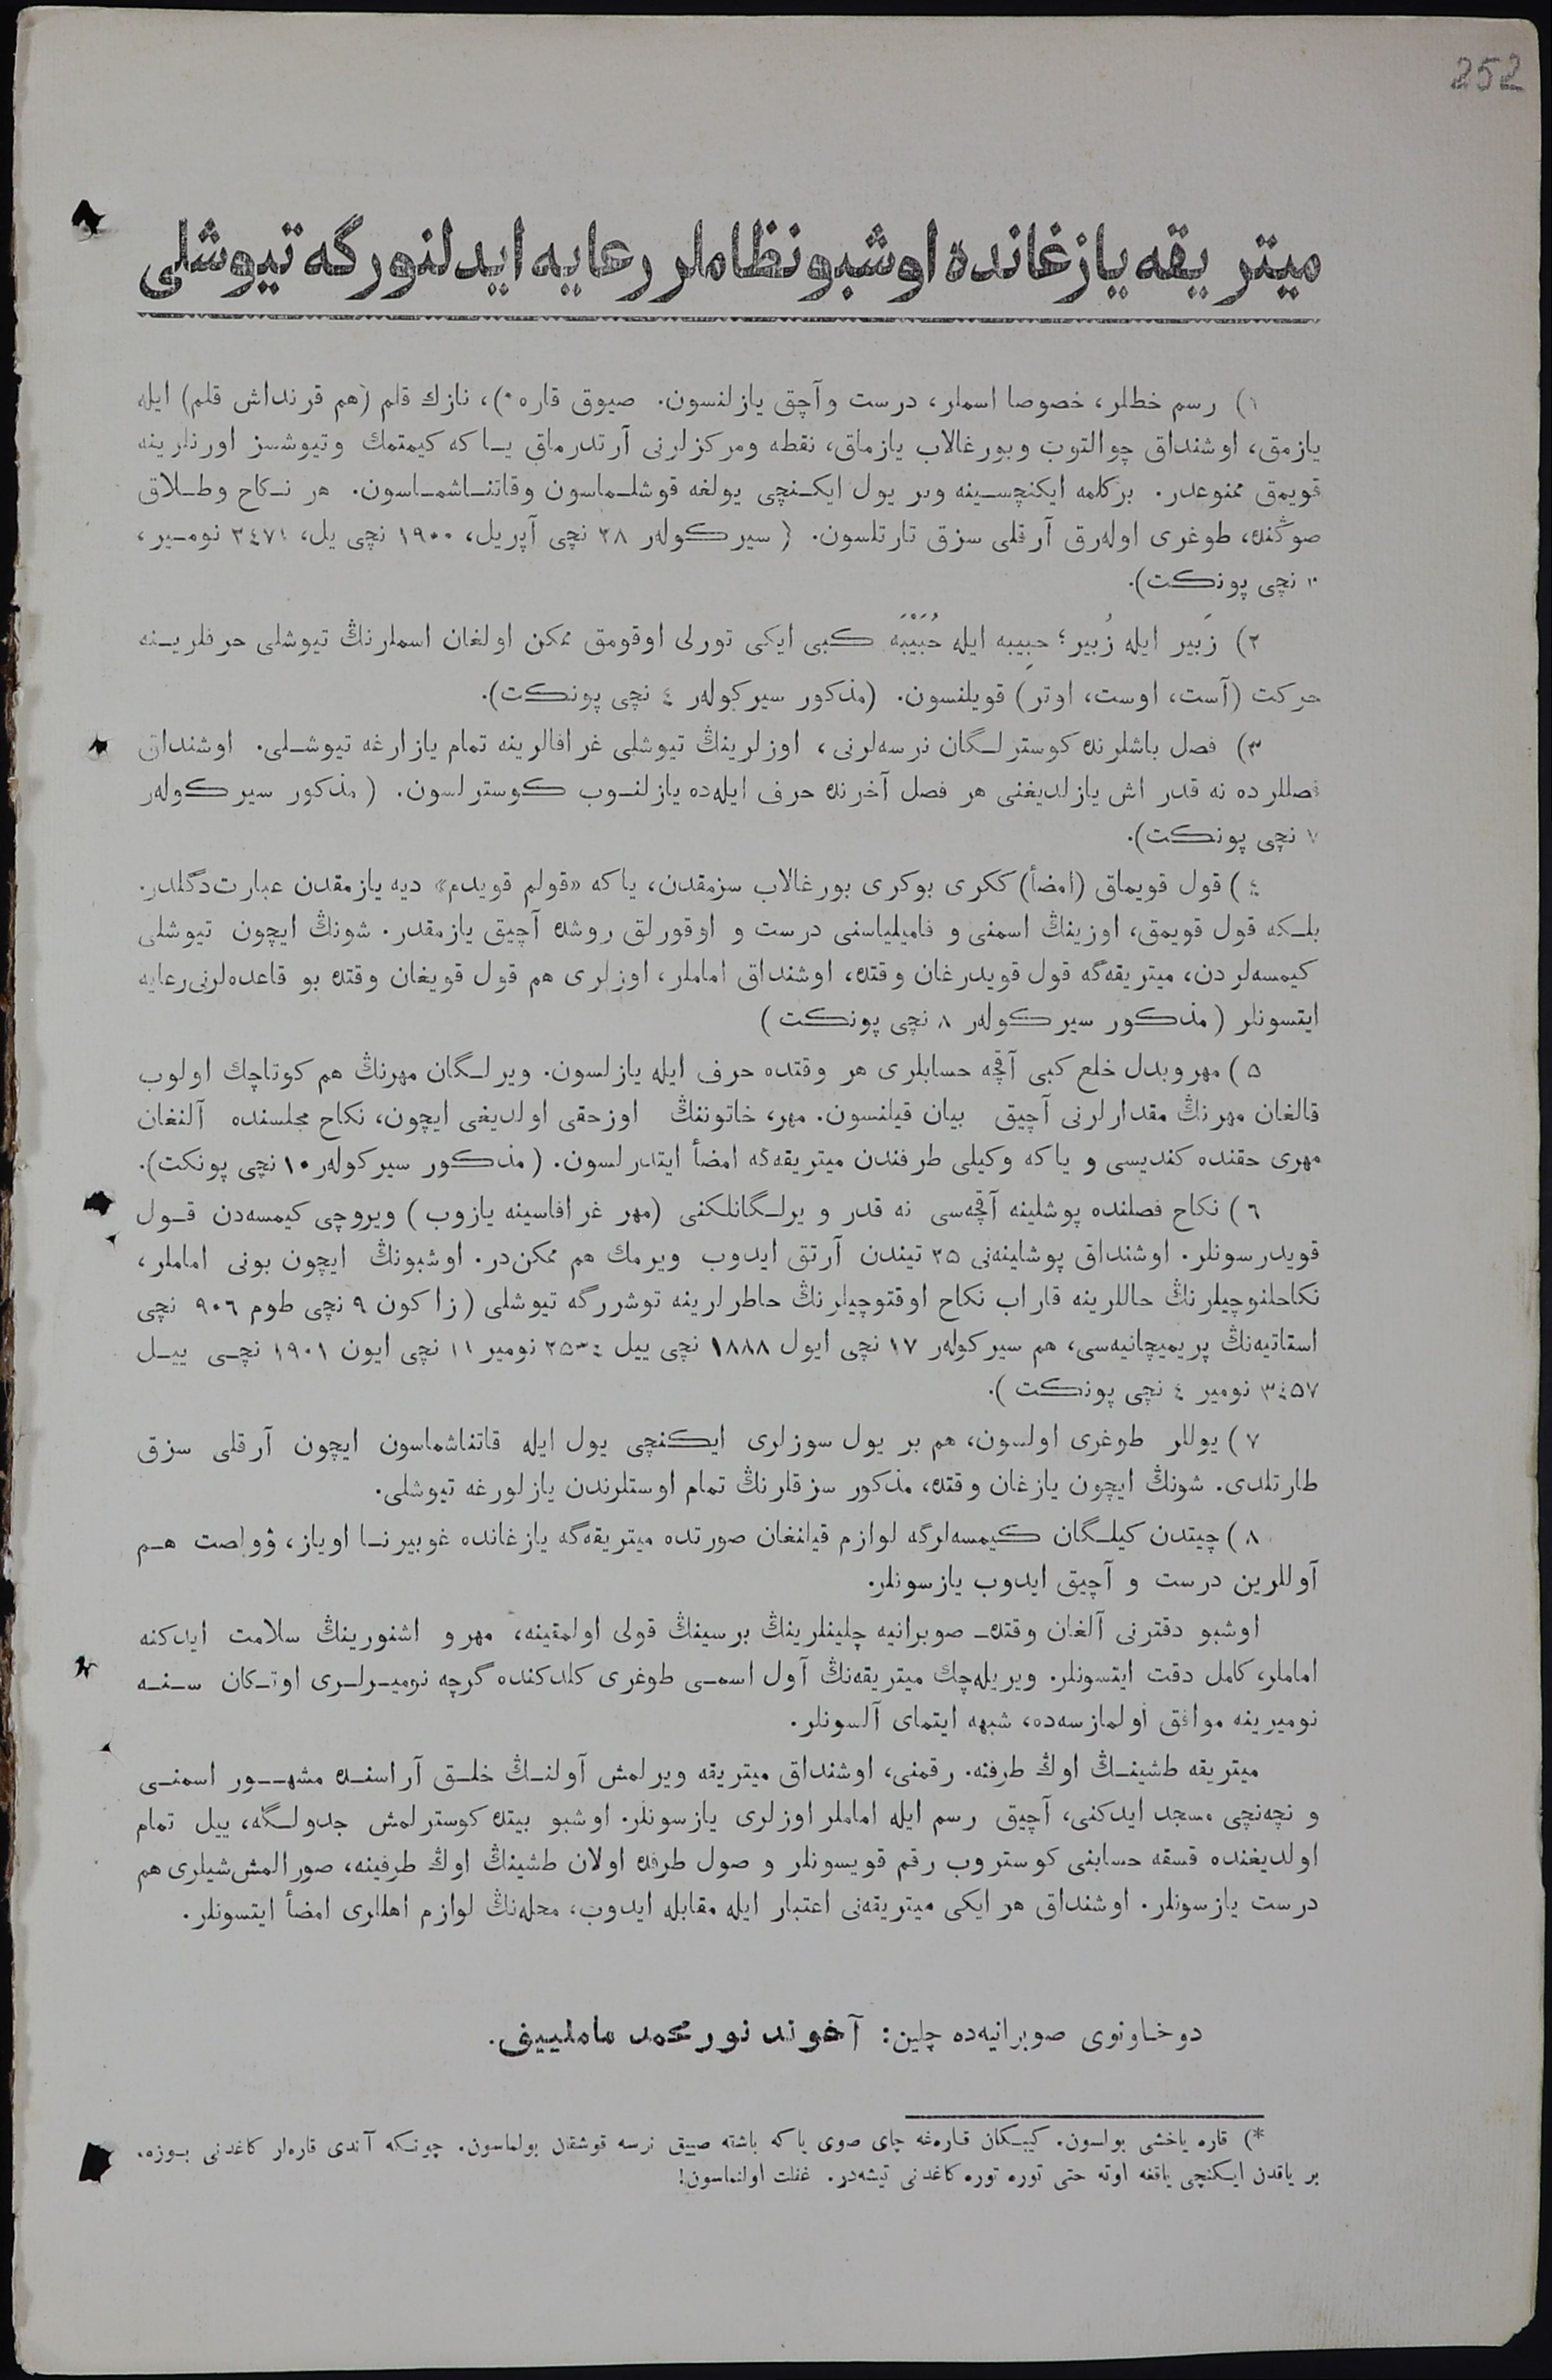 252
ميتريقه يازغانده اوشبو نظاملر رعايه ايدلنورگه تيوشلى
١) رسم خطلر، خصوصا اسملر، درست وآچق يازلنسون. صيوق قاره*)، نازك قلم (هم قرنداش قلم) ايله
يازمق، اوشنداق چوالتوب وبورغالاب يازماق، نقطه ومركزلرنى آرتدرماق يـا كه كيمتمك وتيوشسز اورنلرينه
قويمق ممنوعدر. بركلمه ايكنچسـينه وبر يول ايكـنچى يولغه قوشلـماسون وقاتنـاشمـاسون. هر نـكاح وطـلاق
صوڭنده، طوغرى اولەرق آرقلى سزق تارتلسون. (سيركولەر ٢٨ نچى آپريل، ١٩٠٠ نچى يل، ٢٤٧١ نومـير،
١٠ نچى پونكت).
٢) زَبير ايله زُبير؛ حبِيبه ايله حُبَيْبَه كبى ايكى تورلى اوقومق ممكن اولغان اسملرنڭ تيوشلى حرفلريـنه
حركت (آست، اوست، اوتر) قويلنسون. (مذكور سيركولەر ٤ نچى پونكت).
٣) فصل باشلرنده كوسترلـگان نرسەلرنى، اوزلرينڭ تيوشلى غرافالرينه تمام يازارغه تيوشـلى. اوشنداق
فصللرده نه قدر اش يازلديغنى هر فصل آخرنده حرف ايلەده يازلنـوب كوسترلسون. (مذكور سيركولەر
٧ نچى پونكت).
٤) قول قويماق (امضأ) ككرى بوكرى بورغالاب سزمقدن، ياكه «قولم قويدم» ديه يازمقدن عبارت دگلدر.
بلـكه قول قويمق، اوزينڭ اسمنى و فاميلياسنى درست و اوقورلق روشده آچيق يازمقدر. شونڭ ايچون تيوشلى
كيمسەلردن، ميتريقەگه قول قويدرغان وقتده، اوشنداق اماملر، اوزلرى هم قول قويغان وقتده بو قاعدەلرنى رعايه
ايتسونلر (مذكور سيركولەر ٨ نچى پونكت)
٥) مهر وبدل خلع كبى آقچه حسابلرى هر وقتده حرف ايله يازلسون. ويرلـگان مهرنڭ هم كوتاچك اولوب
قالغان مهرنڭ مقدارلرنى آچيق بيان قيلنسون. مهر، خاتوننڭ اوزحقى اولديغى ايچون، نكاح مجلسنده آلنغان
مهرى حقنده كنديسى و ياكه وكيلى طرفندن ميتريقەگه امضأ ايتدرلسون. (مذكور سيركولەر ١٠ نچى پونكت).
٦) نكاح فصلنده پوشلينه آقچەسى نه قدر ويرلـگانلكنى (مهر غرافاسينه يازوب) ويروچى كيمسەدن قـول
قويدرسونلر. اوشنداق پوشلينەنى ٢٥ تيندن آرتق ايدوب ويرمك هم ممكن‌در. اوشبونڭ ايچون بونى اماملر،
نكاحلنوچيلرنڭ حاللرينه قاراب نكاح اوقتوچيلرنڭ خاطرلرينه توشررگه تيوشلى (زاكون ٩ نچى طوم ٩٠٦ نچى
استاتيەنڭ پريميچانيەسى، هم سيركولەر ١٧ نچى ايول ١٨٨٨ نچى ييل ٢٥٣٤ نومير ١١ نچى ايون ١٩٠١ نچـى ييـل
٣٤٥٧ نومير ٤ نچى پونكت).
٧) يوللر طوغرى اولسون، هم بر يول سوزلرى ايكنچى يول ايله قاتناشماسون ايچون آرقلى سزق
طارتلدى. شونڭ ايچون يازغان وقتده، مذكور سزقلرنڭ تمام اوستلرندن يازلورغه تيوشلى.
٨) چيتدن كيلـگان كيمسەلرگه لوازم قيلنغان صورتده ميتريقەگه يازغانده غوبيرنـا اوياز، ۋولصت هـم
آوللرين درست و آچيق ايدوب يازسونلر.
اوشبو دفترنى آلغان وقتدە صوبرانيه چلينلرينڭ برسينڭ قولى اولمقينه، مهر و اشنورينڭ سلامت ايدكنه
اماملر، كامل دقت ايتسونلر. ويريلەچك ميتريقەنڭ آول اسمـى طوغرى كلدكنده گرچه نوميـرلـرى اوتـكان سـنـه
نوميرينه موافق اولمازسەده، شبهه ايتماى آلسونلر.
ميتريقه طشينـڭ اوڭ طرفنه. رقمنى، اوشنداق ميتريقه ويرلمش آولنـڭ خلـق آراسنـده مشهــور اسمنـى
و نچەنچى مسجد ايدكنى، آچيق رسم ايله اماملر اوزلرى يازسونلر. اوشبو بيتده كوسترلمش جدولـگه، ييل تمام
اولديغنده قسقه حسابنى كوستروب رقم قويسونلر و صول طرفده اولان طشينڭ اوڭ طرفينه، صورالمش شيلرى هم
درست يازسونلر. اوشنداق هر ايكى ميتريقەنى اعتبار ايله مقابله ايدوب، محلەنڭ لوازم اهللرى امضأ ايتسونلر.
دوخاونوى صوبرانيەده چلين: آخوند نورمحمد ماملييف.
*) قاره ياخشى بولسون. كيبـكان قارەغه چاى صوى ياكه باشته صييق نرسه قوشقان بولماسون. چونـكه آندى قارەلر كاغدنى بـوزه،
بر ياقدن ايـكنچى ياققه اوته حتى توره توره كاغدنى تيشەدر. غفلت اولنماسون!